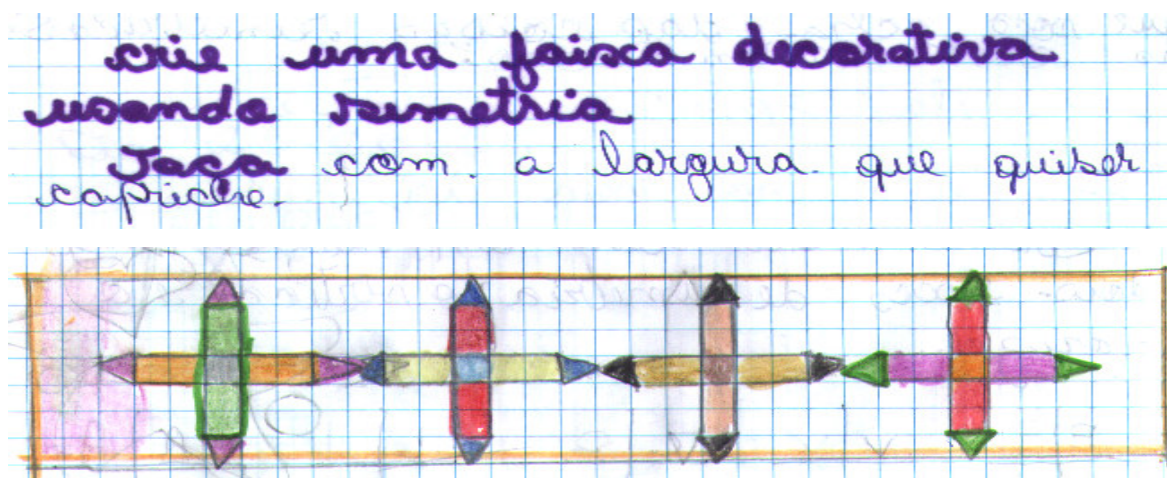 crie uma faisca decorativa
usando simetria
Faça com a largura que quiser
capriche.